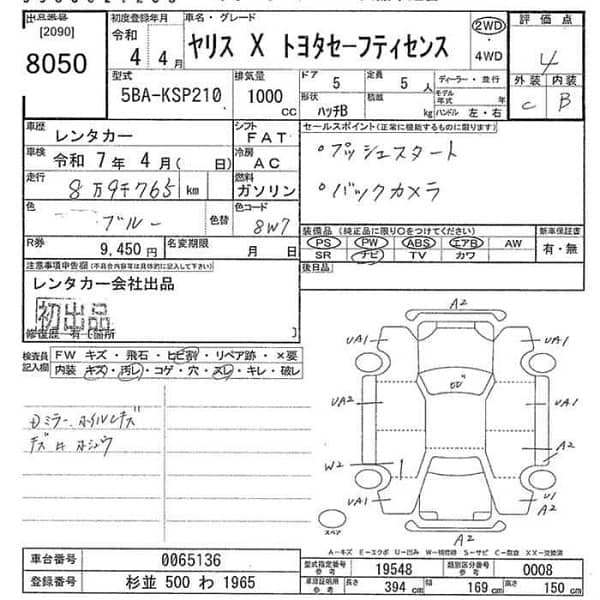 出品番号 初度登録年月 車名・グレード 評価点
[2090] 令和 ヤリス X トヨタセーフティセンス 2WD 4
8050 4年4月 4WD 外装 内装
型式 排気量 ドア 5 定員 5人 ディーラー・並行 C B
5BA-KSP210 1000 CC 形状 ハッチB 積載 kg モデル年式 年式 ハンドル 左・右
車歴 レンタカー シフト FAT セールスポイント(正常に機能するものに限ります)
車検 令和 7年 4月( 日) 冷房 AC ・プッシュスタート
走行 8万9千765 km 燃料 ガソリン ・バックカメラ
色 ブルー 色替 色コード 8W7
装備品(純正品に限り○をつけてください) 新車保証書
R券 9,450円 名変期限 月 日 PS PW ABS エアB AW 有・無
SR ナビ TV カワ
注意事項申告欄(不具合内容等は具体的に記入して下さい) 後日品
レンタカー会社出品
初出品
修復歴 有(箇所 )
検査員記入欄 FW キズ・飛石・ヒビ割・リペア跡・×要
内装 キズ・汚レ・コゲ・穴・スレ・キレ・破レ
A2
UA1 UA1
UA2 UA1
A2
W2
UA1 U1
A1
A2
スペア
A－キズ E－エクボ U－凹み W－補修跡 S－サビ C－腐蝕 XX－交換済
車台番号 0065136 型式指定番号 参考 19548 類別区分番号 参考 0008
登録番号 杉並 500 わ 1965 車証証明用 参考 長さ 394 cm 幅 169 cm 高さ 150 cm